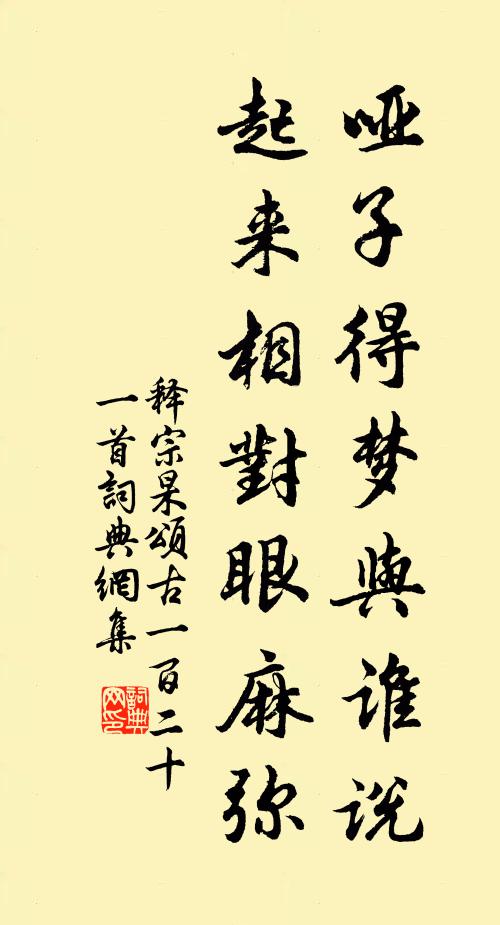 哑子得梦与谁说
起来相對眼麻弥
释宗杲頌古一百二十
一首詞典網集
詞典网印